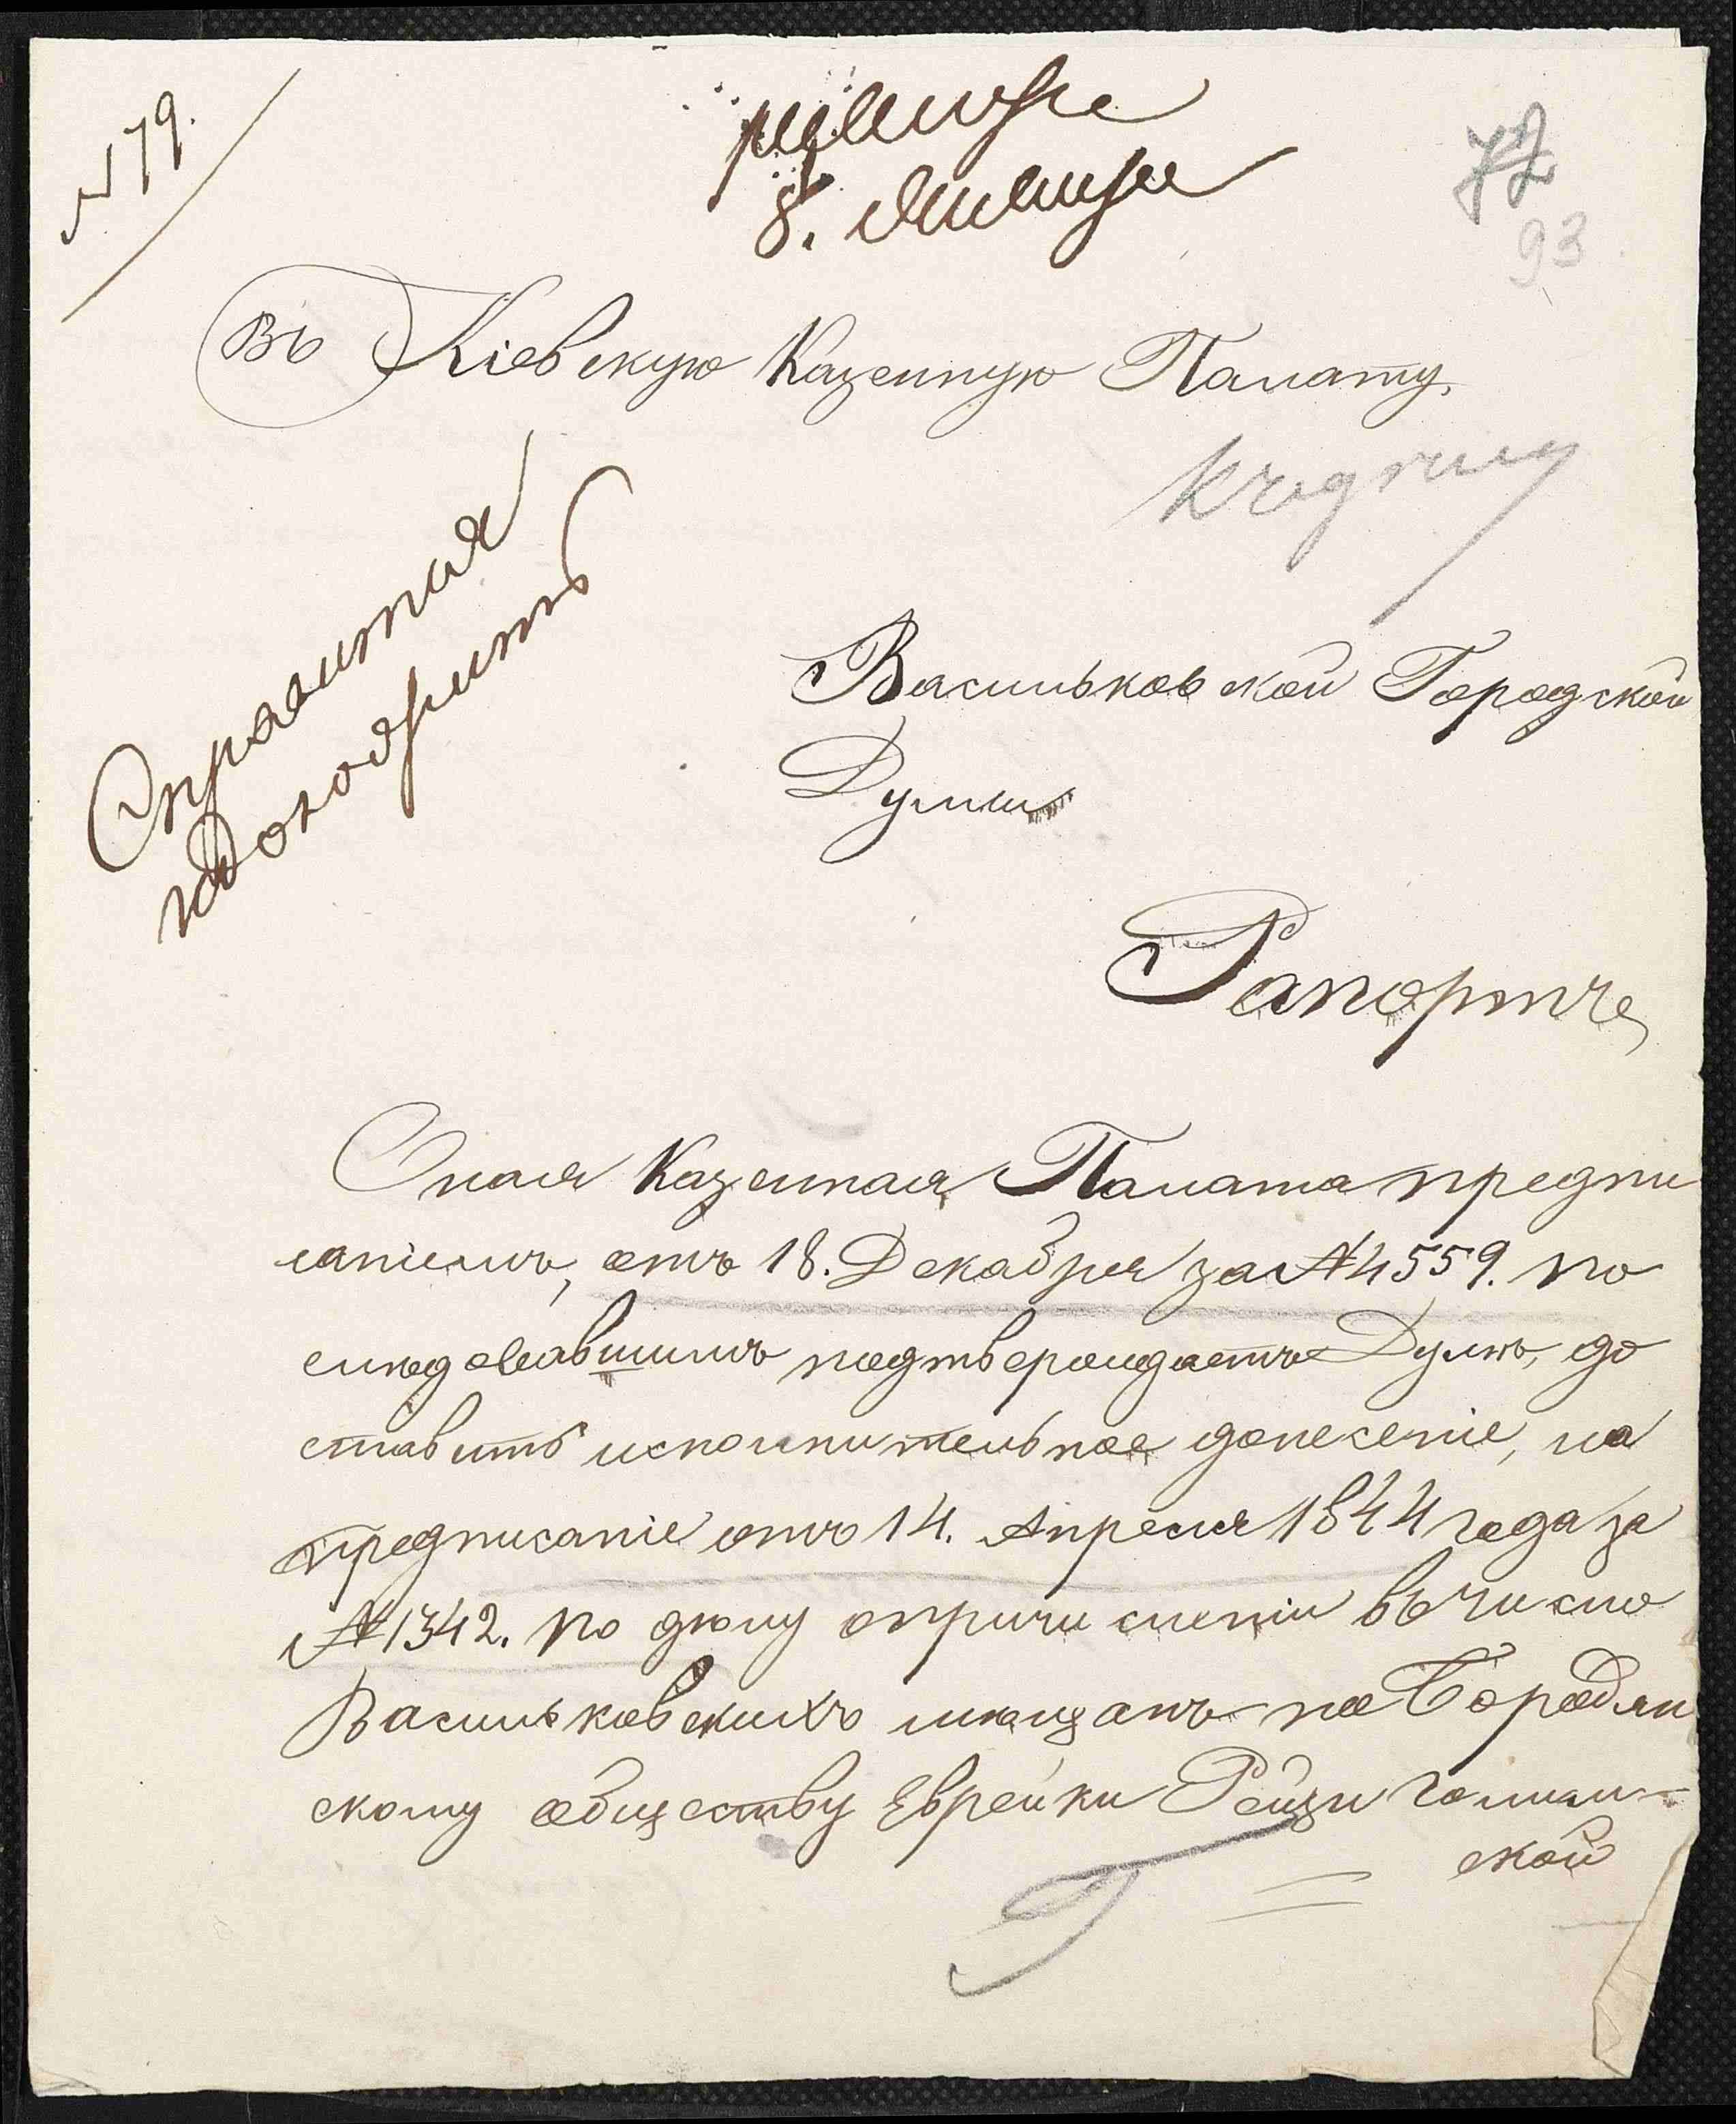 № 79.
8. Января
72
93
Въ Кіевскую Казенную Палату.
Справится
Васильковской Городской
Думы
Рапортъ
Оная Казенная Палата предпи
саніемъ, отъ 18. Декабря за № 4559. по
следовавшимъ подтверждаетъ Думѣ, до
ставить исполнительное донесеніе, на
предписаніе отъ 14. Апреля 1844 года за
№ 1342. по делу опричисленіи въ число
Васильковскихъ мещанъ по Бородян
скому обществу Еврейки Рейзи
ской